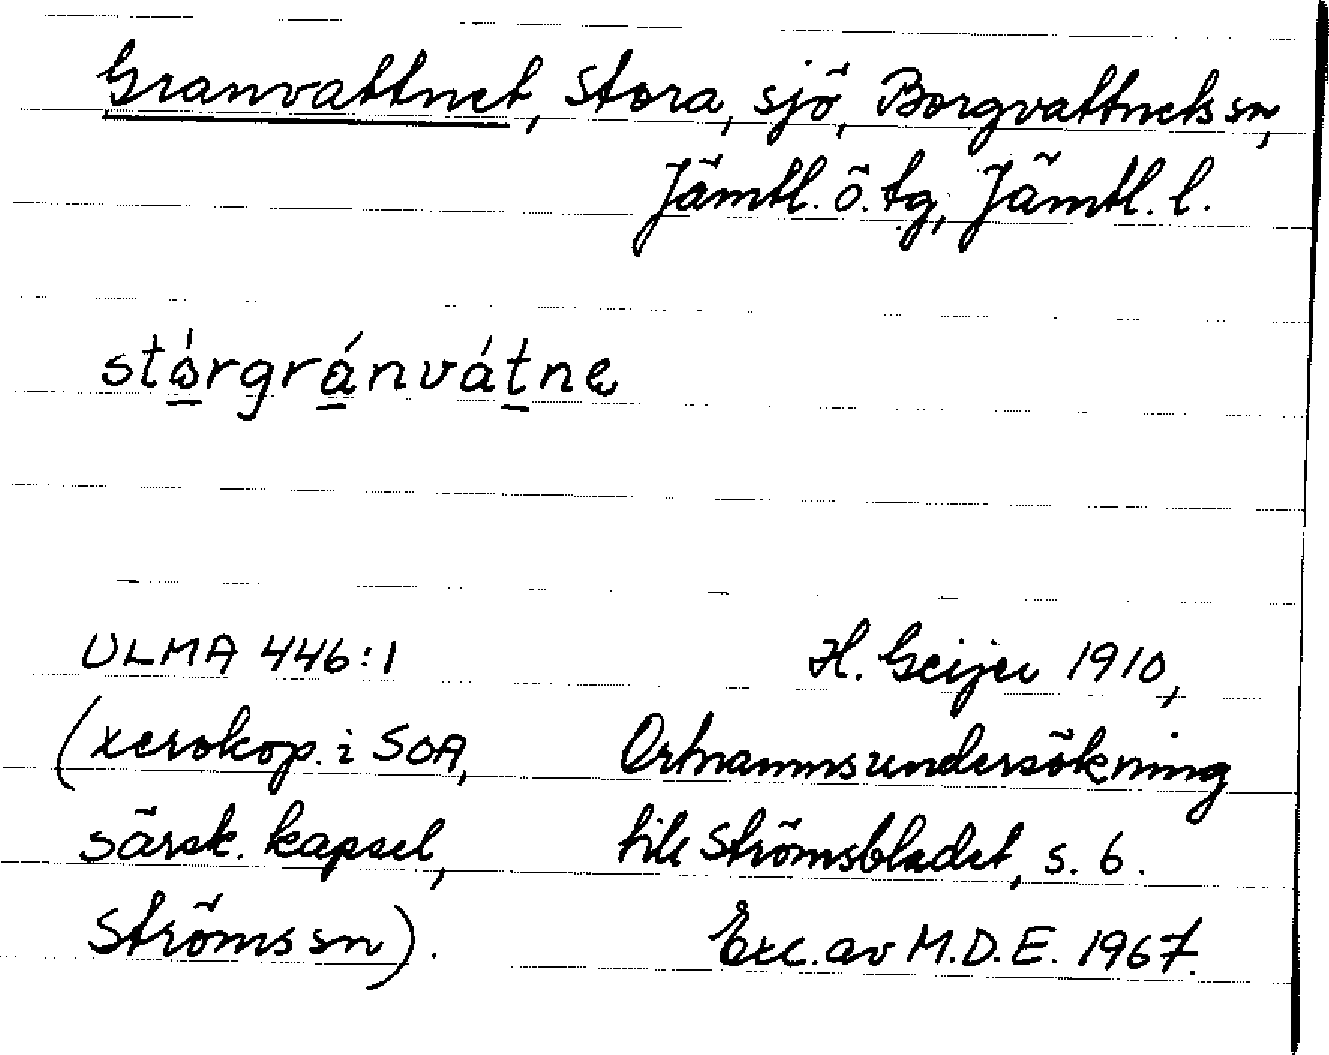 Granvattnet, Stora, sjö, Borgvattnets sn,
Jämtl. ö. tg, Jämtl. l.
stórgránvátne
ULMA 446:1
(xerokop. i SOA,
särsk. kapsel,
Ströms sn).
H. Geijer 1910,
Ortnamnsundersökning
till Strömsbladet, s. 6.
Exc. av M.D.E. 1967.